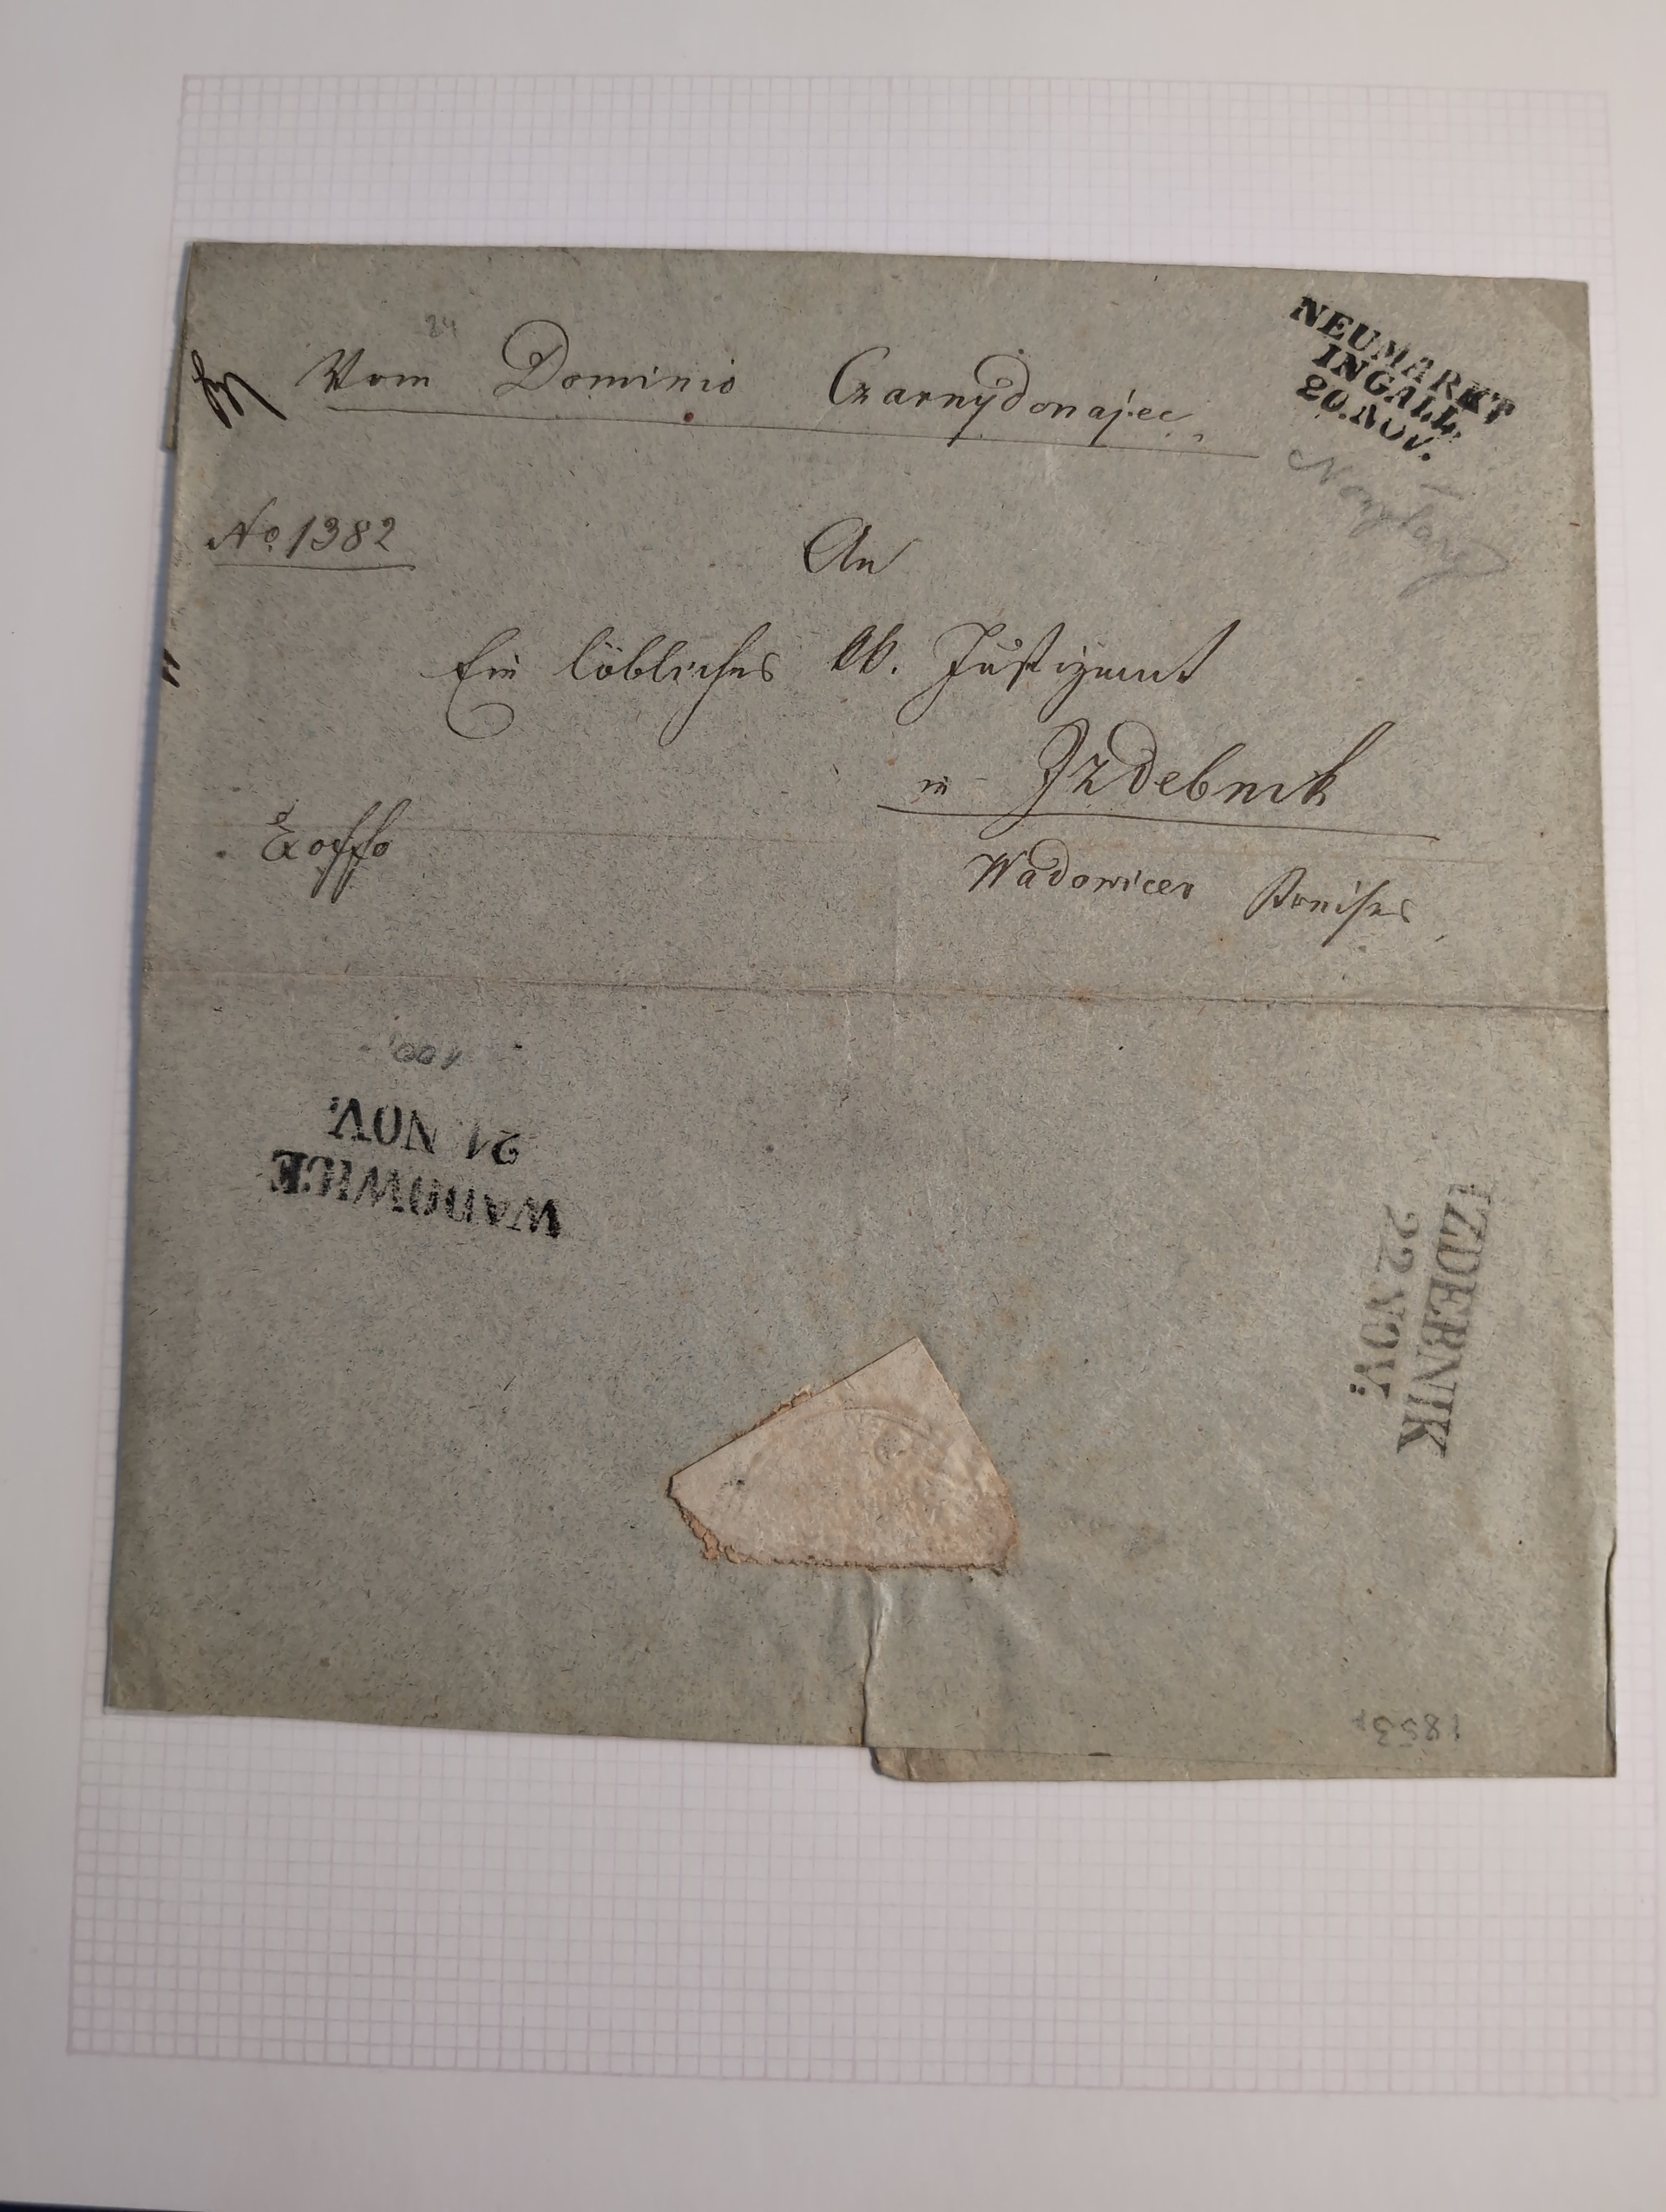 24
Vom Dominio Czarnydonajec
NEUMARKT
IN GALL:
20. NOV.
No. 1382
An
Ein löbliches Justizamt
in Izdebnik
Exoffo
Wadowicer Kreises
100,-
WADOWICE
21 NOV:
IZDEBNIK
22 NOV:
1853